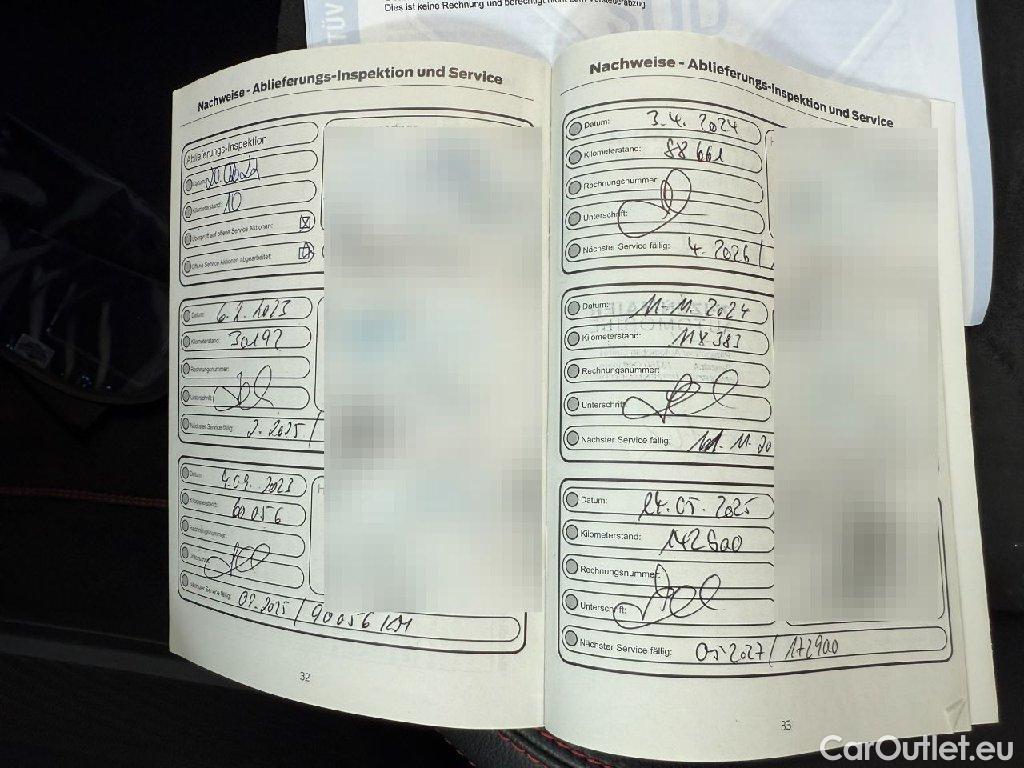 TÜV
Dies ist keine Rechnung und berechtigt nicht zum Vorsteuerabzug
Nachweise - Ablieferungs-Inspektion und Service
Ablieferungs-Inspektion
Datum:
Kilometerstand: 10
Überprüft auf offene Service Aktionen:
Offene Service Aktionen abgearbeitet:
Datum: 6.2.2023
Kilometerstand: 30192
Rechnungsnummer:
Unterschrift:
Nächster Service fällig: 2.2025 /
Datum: 4.09.2023
Kilometerstand: 60056
Rechnungsnummer:
Unterschrift:
Nächster Service fällig: 09.2025 / 90056 KM
32
Nachweise - Ablieferungs-Inspektion und Service
Datum: 3.4.2024
Kilometerstand: 88661
Rechnungsnummer:
Unterschrift:
Nächster Service fällig: 4.2026 /
Datum: 11.11.2024
Kilometerstand: 118383
Rechnungsnummer:
Unterschrift:
Nächster Service fällig: 11.20
Datum: 24.05.2025
Kilometerstand: 142900
Rechnungsnummer:
Unterschrift:
Nächster Service fällig: 05.2027 / 172900
33
CarOutlet.eu